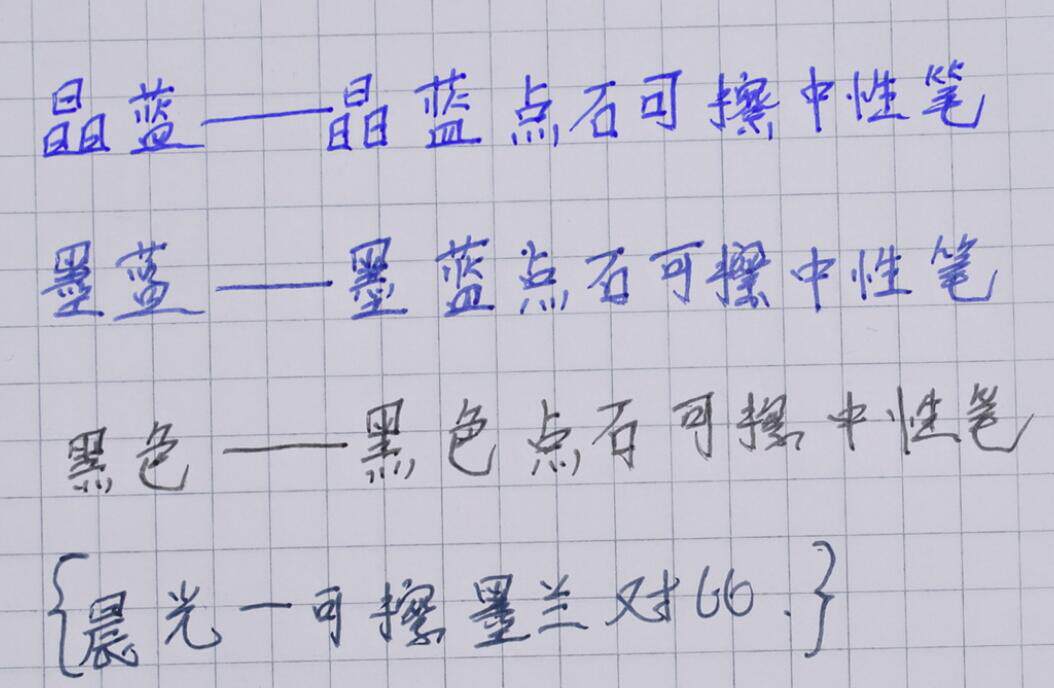 晶蓝——晶蓝点石可擦中性笔
墨蓝——墨蓝点石可擦中性笔
黑色——黑色点石可擦中性笔
{晨光一可擦墨兰对66.}